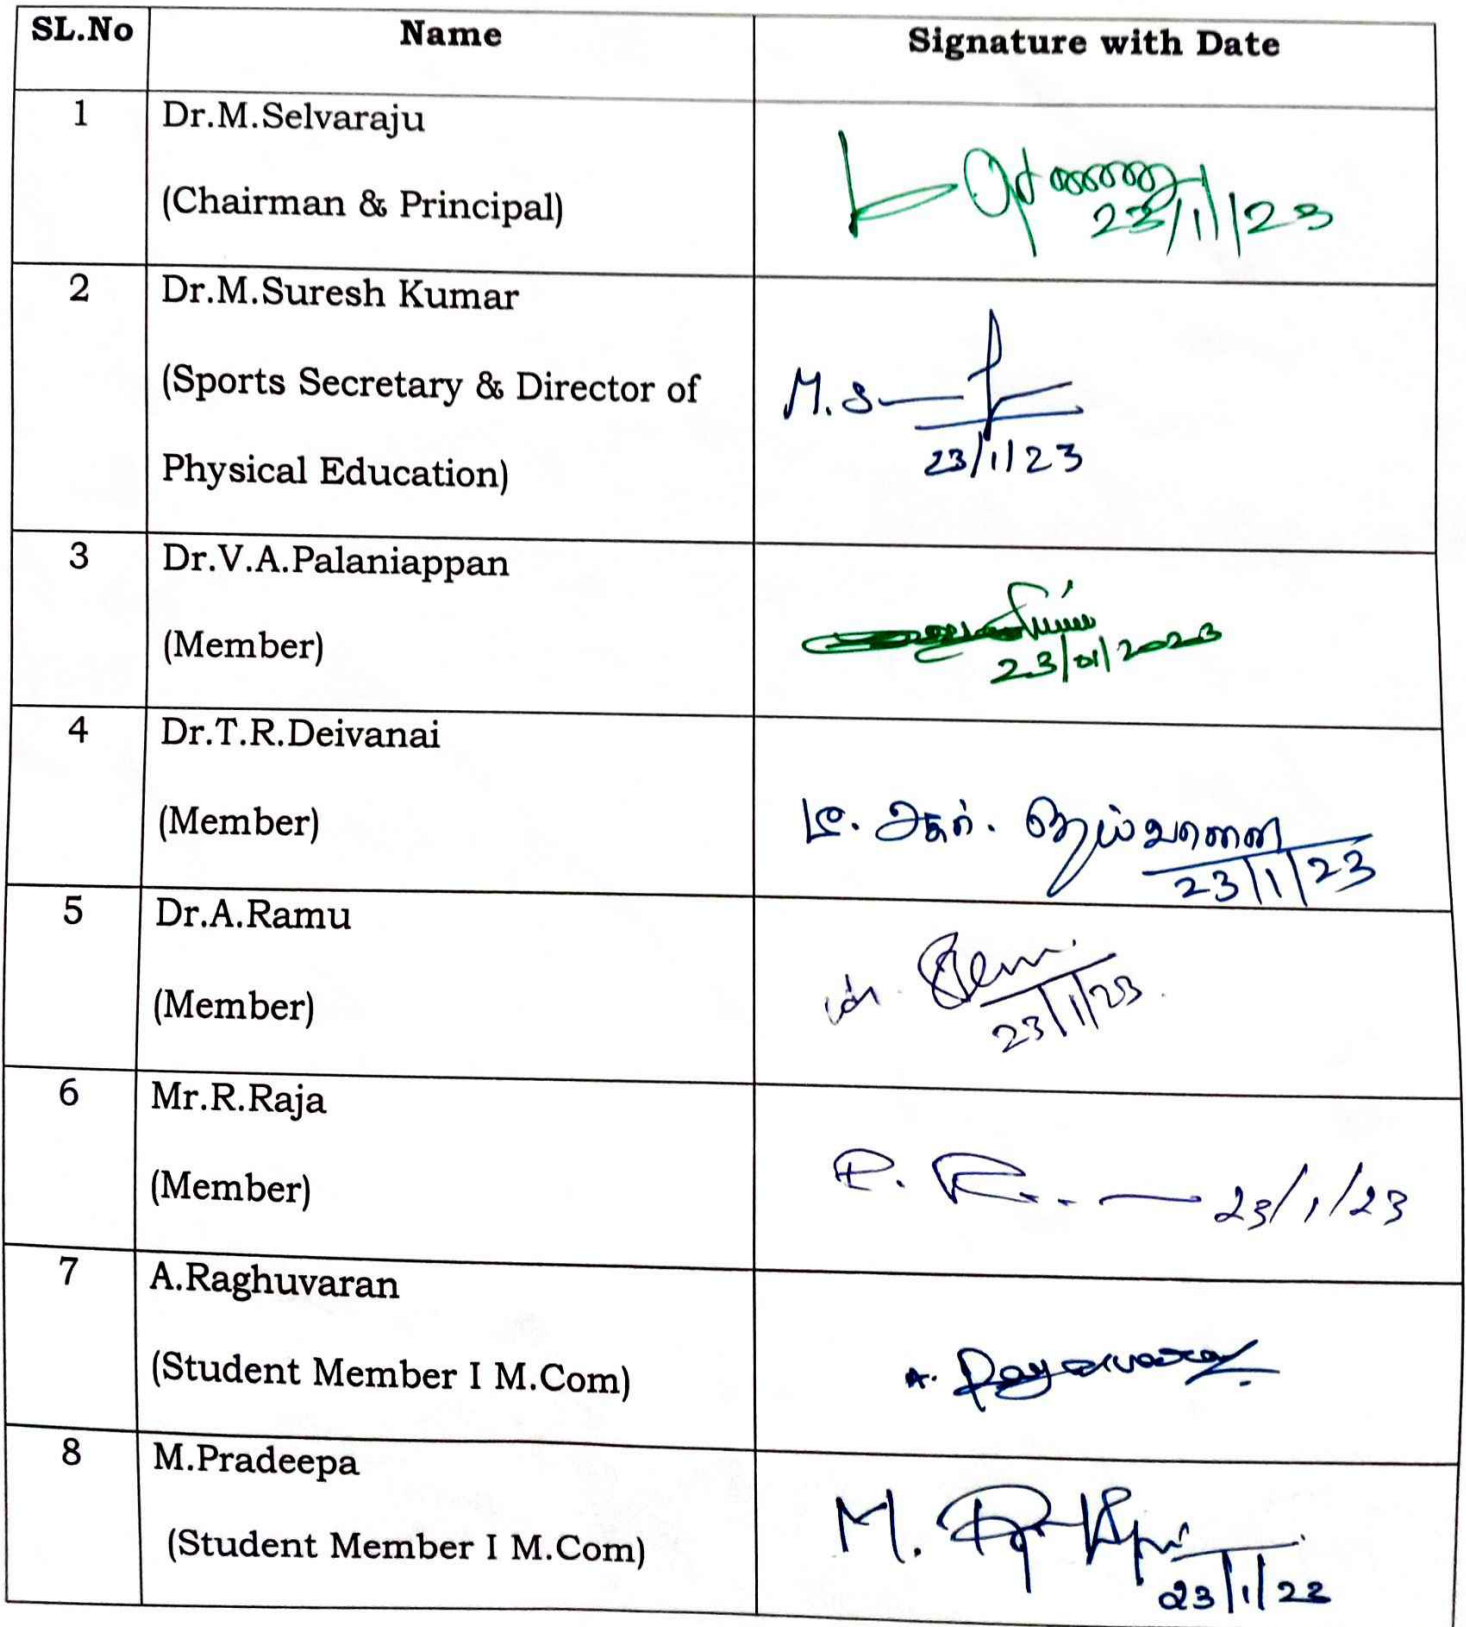 SL.No Name Signature with Date
1 Dr.M.Selvaraju
(Chairman & Principal)
23/1/23
2 Dr.M.Suresh Kumar
(Sports Secretary & Director of
M.S
Physical Education)
23/1/23
3 Dr.V.A.Palaniappan
(Member)
23/01/2023
4 Dr.T.R.Deivanai
(Member)
டி. ஆர். தெய்வானை
23/1/23
5 Dr.A.Ramu
(Member)
23/1/23
6 Mr.R.Raja
(Member)
23/1/23
7 A.Raghuvaran
(Student Member I M.Com)
A.
8 M.Pradeepa
(Student Member I M.Com)
M.
23/1/23